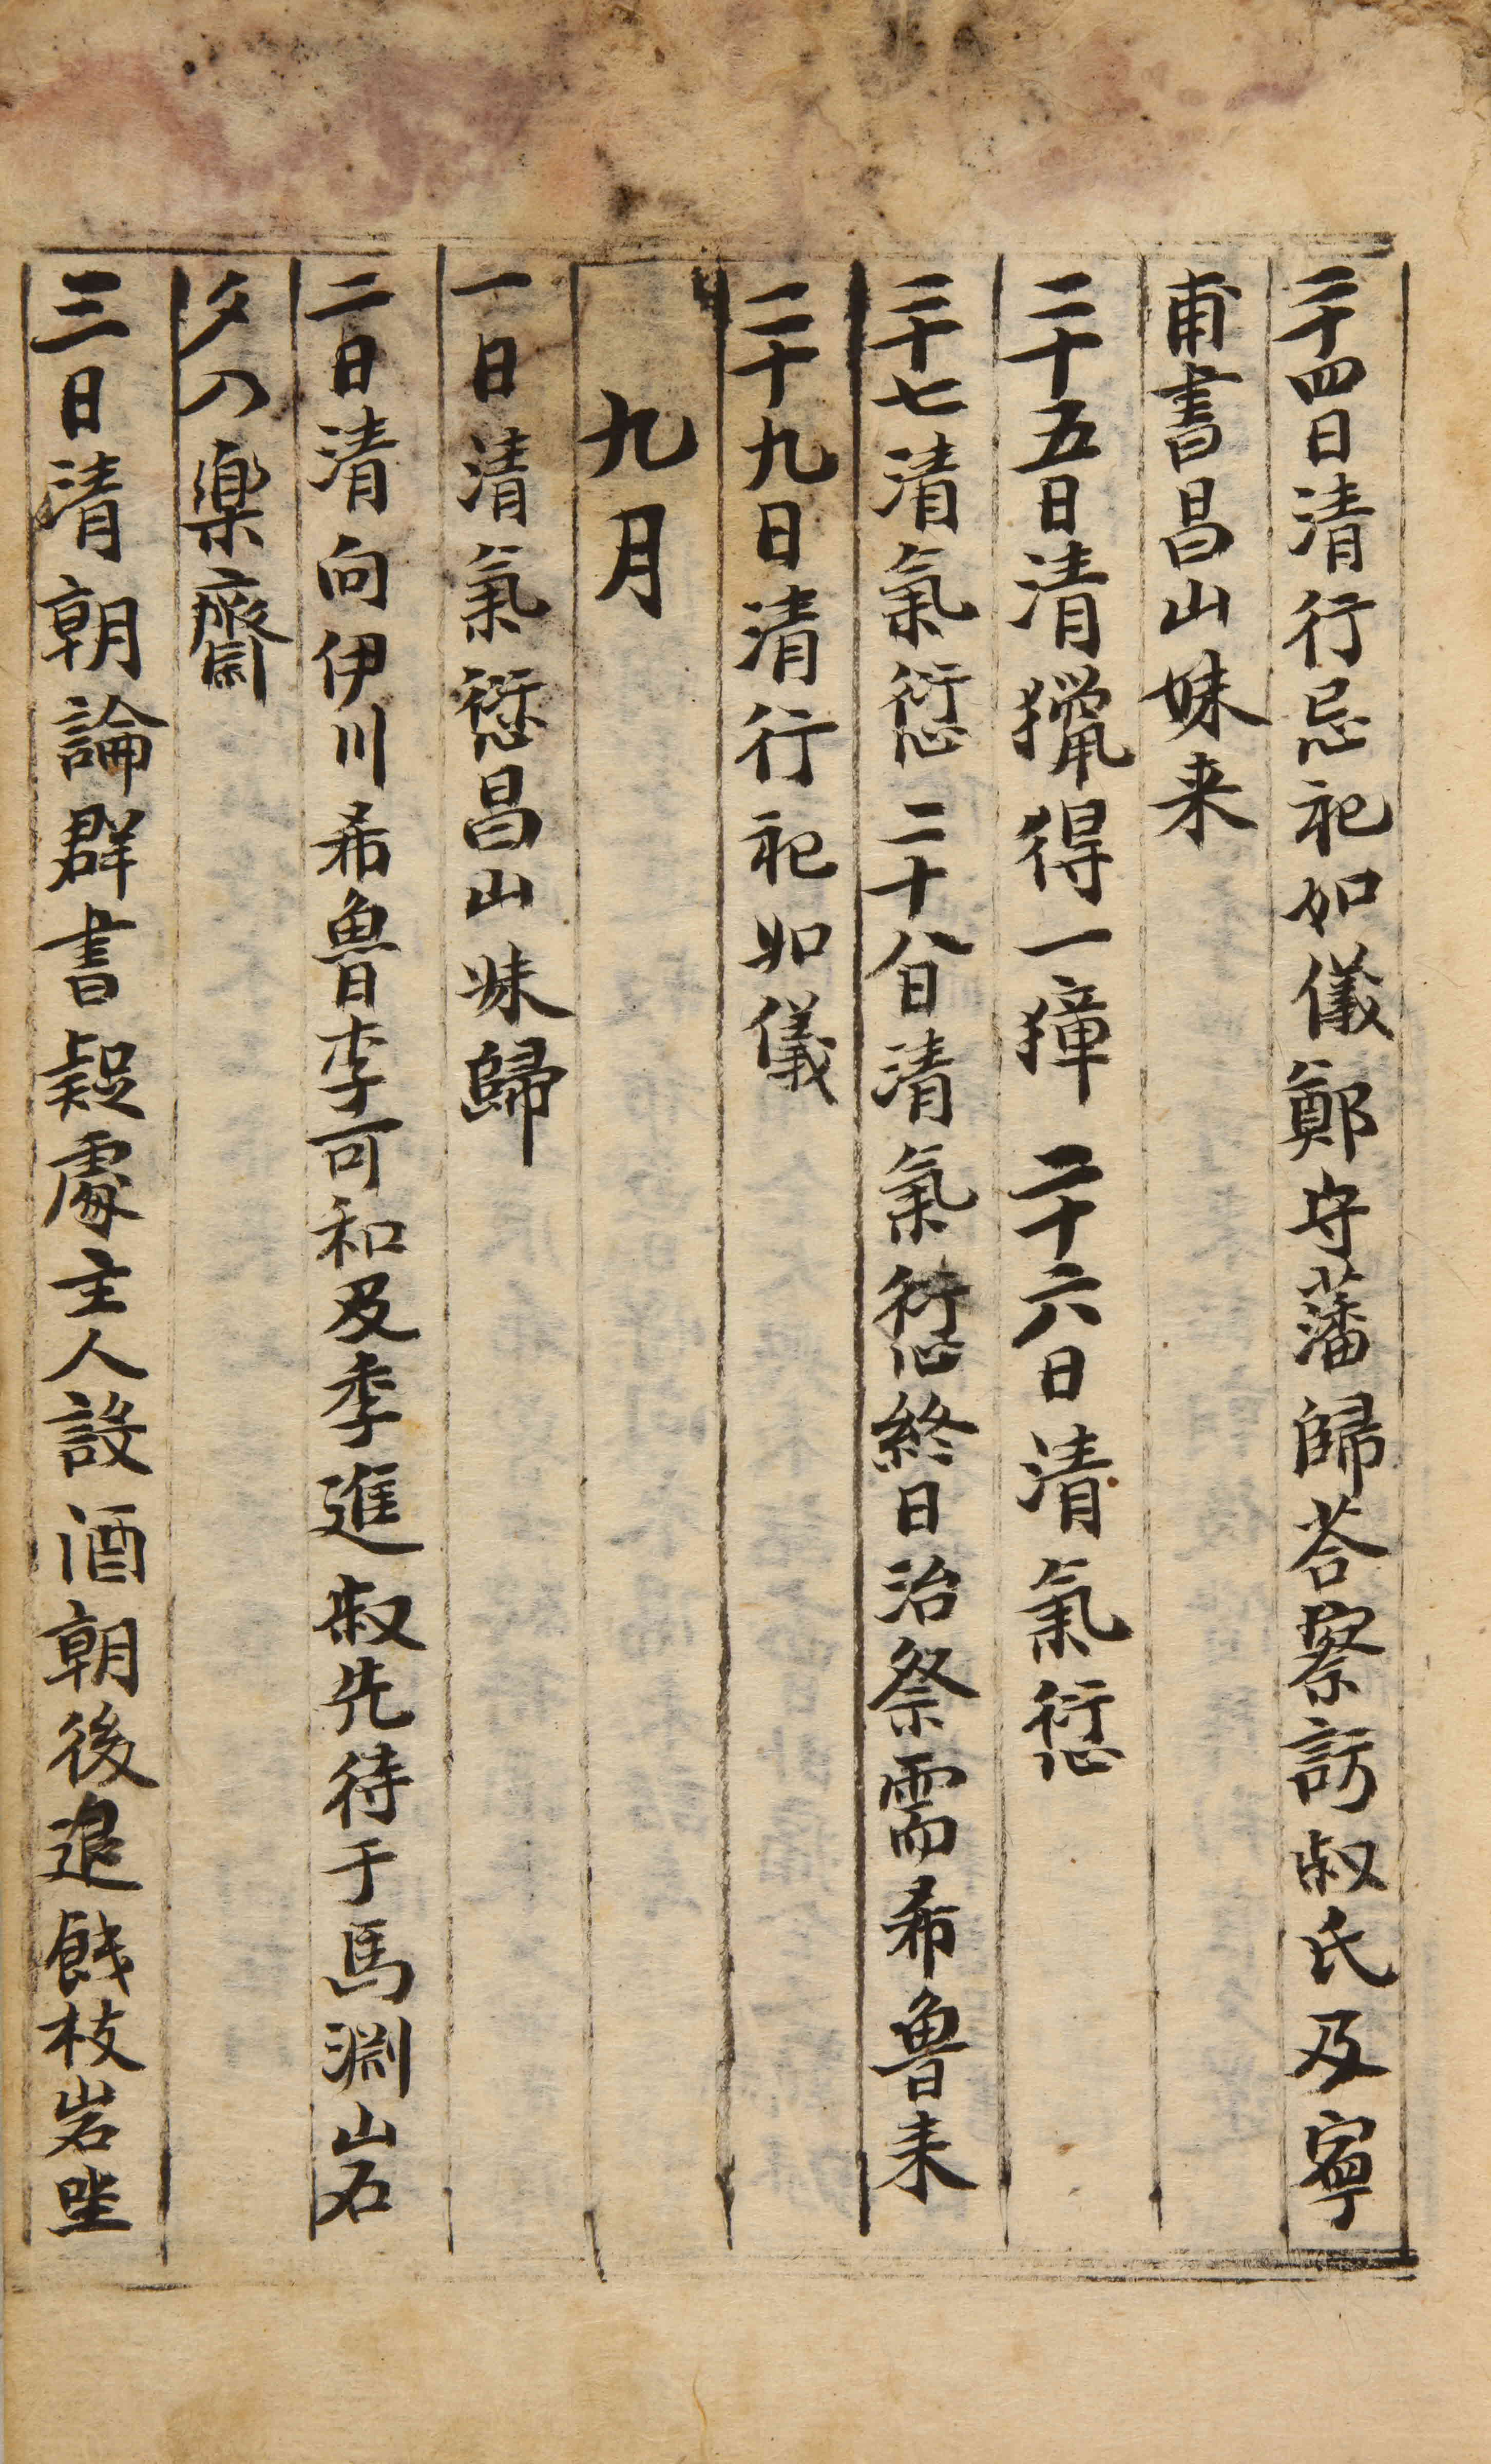 二十四日清行忌祀如儀鄭守藩歸荅察訪叔氏及寧
甫書昌山妹来
二十五日清獵得一獐二十六日清氣愆
二十七清氣愆二十八日清氣愆終日治祭需希魯来
二十九日清行祀如儀
九月
一日清氣愆昌山妹歸
二日清向伊川希魯李可和及季進叔先待于馬淵山石
夕入楽齋
三日清朝論群書疑處主人設酒朝後追餞枝岩坐